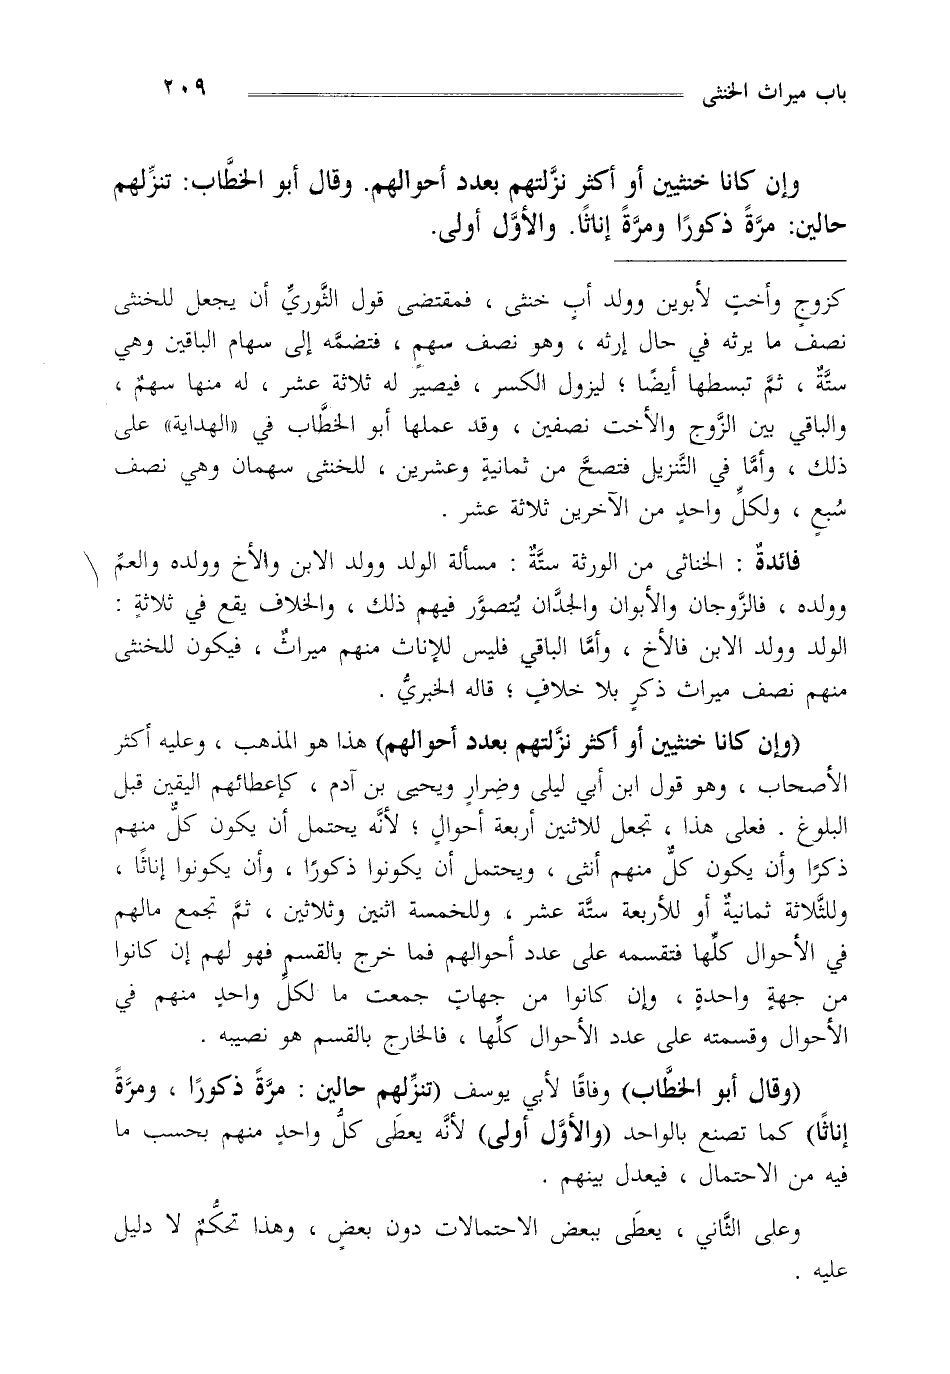 باب ميراث الخنثى ٢٠٩
وإن كانا خنثيين أو أكثر نزَّلتهم بعدد أحوالهم. وقال أبو الخطَّاب: تنزِّلهم
حالين: مرَّةً ذكورًا ومرَّةً إناثًا. والأوَّل أولى.
كزوجٍ وأختٍ لأبوين وولد أبٍ خنثى ، فمقتضى قول الثَّوريِّ أن يجعل للخنثى
نصفُ ما يرثه في حال إرثه ، وهو نصف سهمٍ ، فتضمَّه إلى سهام الباقين وهي
ستَّةٌ ، ثمَّ تبسطها أيضًا ؛ ليزول الكسر ، فيصير له ثلاثة عشر ، له منها سهمٌ ،
والباقي بين الزَّوج والأخت نصفين ، وقد عملها أبو الخطَّاب في «الهداية» على
ذلك ، وأمَّا في التَّنزيل فتصحَّ من ثمانيةٍ وعشرين ، للخنثى سهمان وهي نصف
سُبعٍ ، ولكلِّ واحدٍ من الآخرين ثلاثة عشر .
فائدةٌ : الخناثى من الورثة ستَّةٌ : مسألة الولد وولد الابن والأخ وولده والعمِّ
وولده ، فالزَّوجان والأبوان والجدَّان يُتصوَّر فيهم ذلك ، والخلاف يقع في ثلاثةٍ :
الولد وولد الابن فالأخ ، وأمَّا الباقي فليس للإناث منهم ميراثٌ ، فيكون للخنثى
منهم نصف ميراث ذكرٍ بلا خلافٍ ؛ قاله الخبريُّ .
(وإن كانا خنثيين أو أكثر نزَّلتهم بعدد أحوالهم) هذا هو المذهب ، وعليه أكثر
الأصحاب ، وهو قول ابن أبي ليلى وضِرارٍ ويحيى بن آدم ، كإعطائهم اليقين قبل
البلوغ . فعلى هذا ، تجعل للاثنين أربعة أحوالٍ ؛ لأنَّه يحتمل أن يكون كلٌّ منهم
ذكرًا وأن يكون كلٌّ منهم أنثى ، ويحتمل أن يكونوا ذكورًا ، وأن يكونوا إناثًا ،
وللثَّلاثة ثمانيةٌ أو للأربعة ستَّة عشر ، وللخمسة اثنين وثلاثين ، ثمَّ تجمع مالهم
في الأحوال كلِّها فتقسمه على عدد أحوالهم فما خرج بالقسم فهو لهم إن كانوا
من جهةٍ واحدةٍ ، وإن كانوا من جهاتٍ جمعت ما لكلِّ واحدٍ منهم في
الأحوال وقسمته على عدد الأحوال كلِّها ، فالخارج بالقسم هو نصيبه .
(وقال أبو الخطَّاب) وفاقًا لأبي يوسف (تنزِّلهم حالين : مرَّةً ذكورًا ، ومرَّةً
إناثًا) كما تصنع بالواحد (والأوَّل أولى) لأنَّه يعطَى كلُّ واحدٍ منهم بحسب ما
فيه من الاحتمال ، فيعدل بينهم .
وعلى الثَّاني ، يعطَى ببعض الاحتمالات دون بعضٍ ، وهذا تحكُّمٌ لا دليل
عليه .